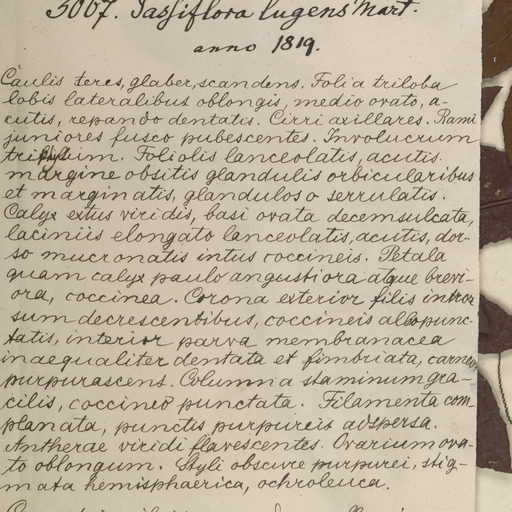 3067. Passiflora lugens Mart.
anno 1819.
Caulis teres, glaber, scandens. Folia triloba
lobis lateralibus oblongis, medio ovato, a-
cutis, repando dentatis. Cirri axillares. Rami
juniores fusco pubescentes. Involucrum
triphyllum. Foliolis lanceolatis, acutis.
margine obsitis glandulis orbicularibus
et marginatis, glanduloso serrulatis.
Calyx extus viridis, basi ovata decemsulcata,
laciniis elongato lanceolatis, acutis, dor-
so mucronatis intus coccineis. Petala
quam calyx paulo angustiora atque brevi-
ora, coccinea. Corona exterior filis intror
sum decrescentibus, coccineis albopunc-
tatis, interior parva membranacea
inaequaliter dentata et fimbriata, carneo
purpurascens. Columna staminum gra-
cilis, coccineo punctata. Filamenta com
planata, punctis purpureis adspersa.
Antherae viridi flavescentes. Ovarium ova-
to oblongum. Styli obscure purpurei, stig-
mata hemisphaerica, ochroleuca.